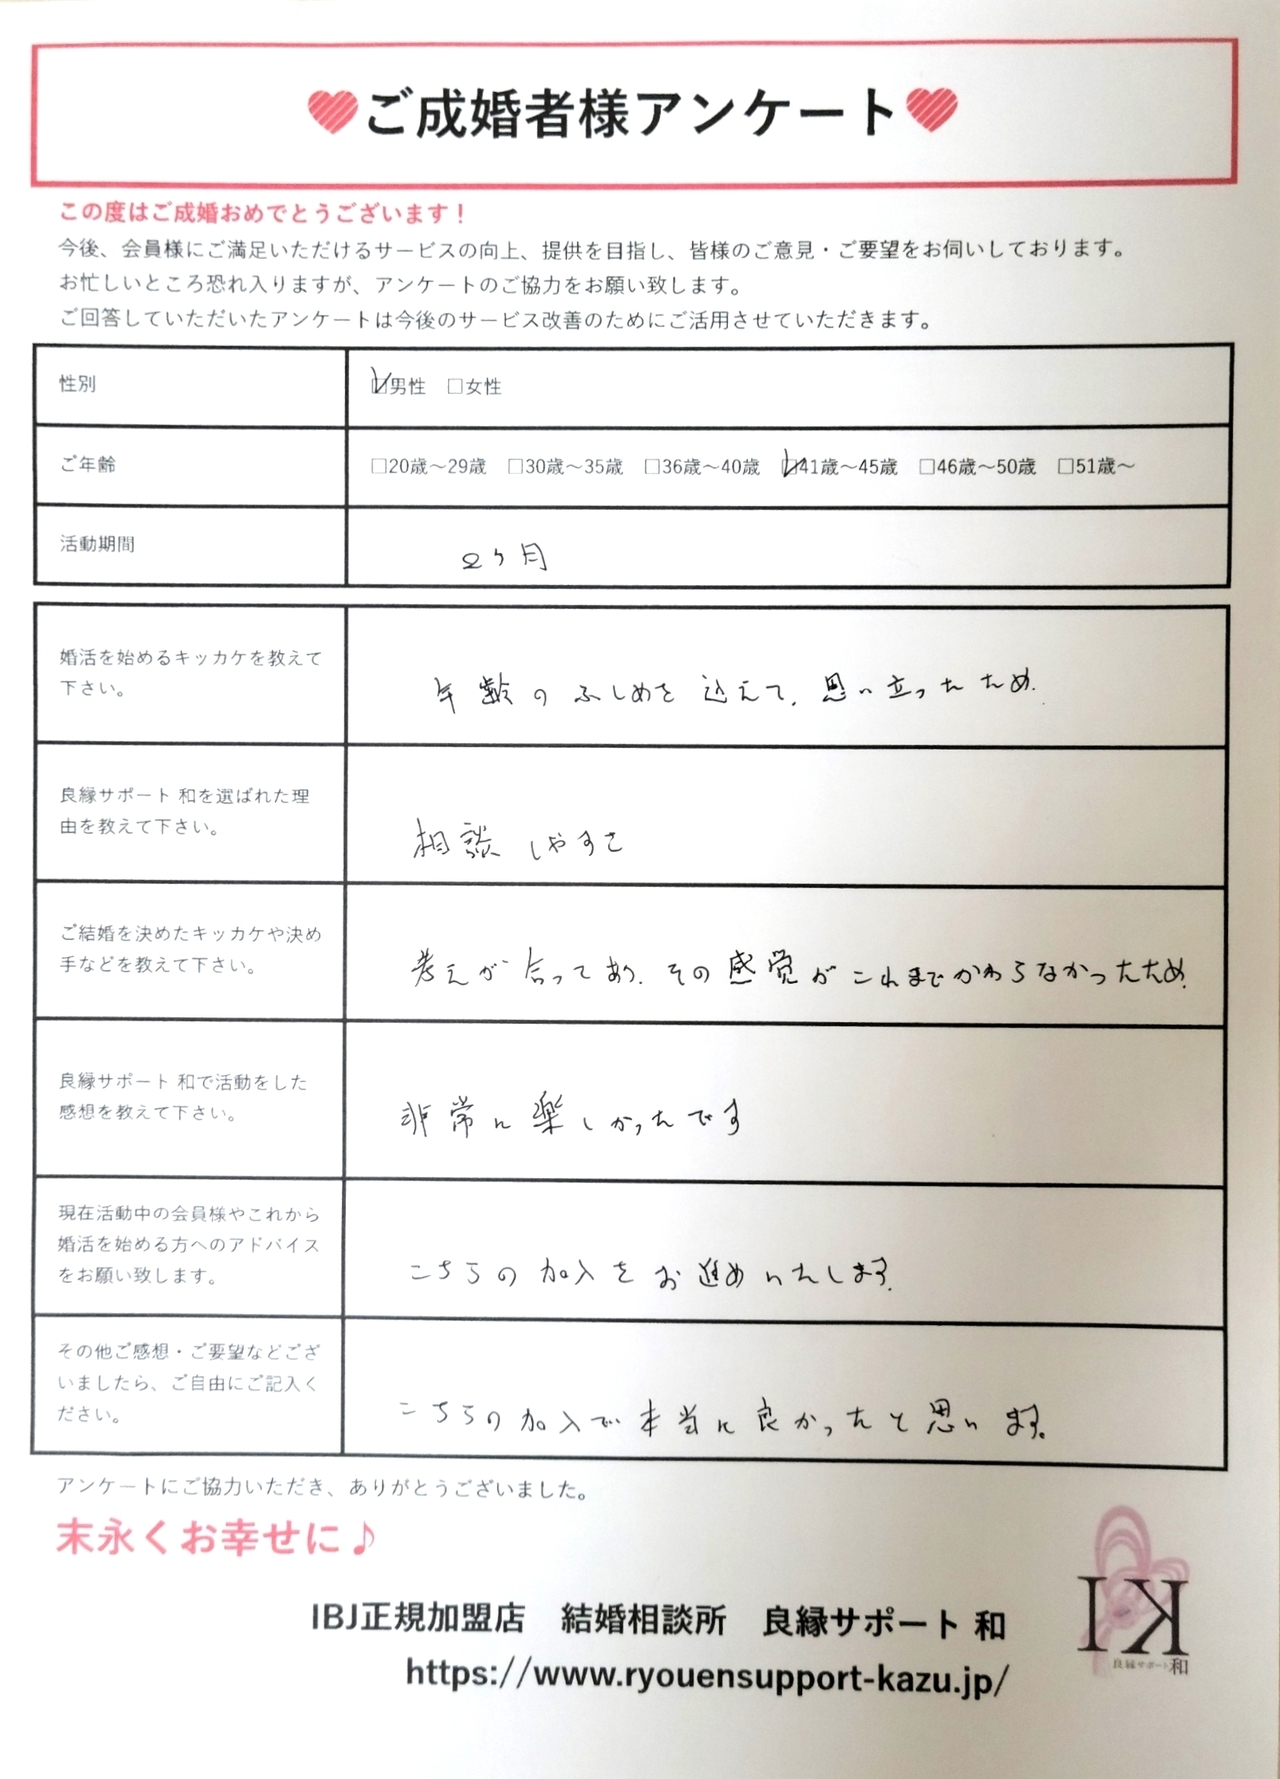 ご成婚者様アンケート
この度はご成婚おめでとうございます！
今後、会員様にご満足いただけるサービスの向上、提供を目指し、皆様のご意見・ご要望をお伺いしております。
お忙しいところ恐れ入りますが、アンケートのご協力をお願い致します。
ご回答していただいたアンケートは今後のサービス改善のためにご活用させていただきます。
性別
☑男性 □女性
ご年齢
□20歳〜29歳 □30歳〜35歳 □36歳〜40歳 ☑41歳〜45歳 □46歳〜50歳 □51歳〜
活動期間
2ヶ月
婚活を始めるキッカケを教えて
下さい。
年齢のふしめを込えて、思い立ったため.
良縁サポート 和を選ばれた理
由を教えて下さい。
相談しやすさ
ご結婚を決めたキッカケや決め
手などを教えて下さい。
考えが合っており、その感覚がこれまでかわらなかったため.
良縁サポート 和で活動をした
感想を教えて下さい。
非常に楽しかったです
現在活動中の会員様やこれから
婚活を始める方へのアドバイス
をお願い致します。
こちらの加入をお進めいたします.
その他ご感想・ご要望などござ
いましたら、ご自由にご記入く
ださい。
こちらの加入で本当に良かったと思います。
アンケートにご協力いただき、ありがとうございました。
末永くお幸せに♪
IBJ正規加盟店 結婚相談所 良縁サポート 和
https://www.ryouensupport-kazu.jp/
良縁サポート和